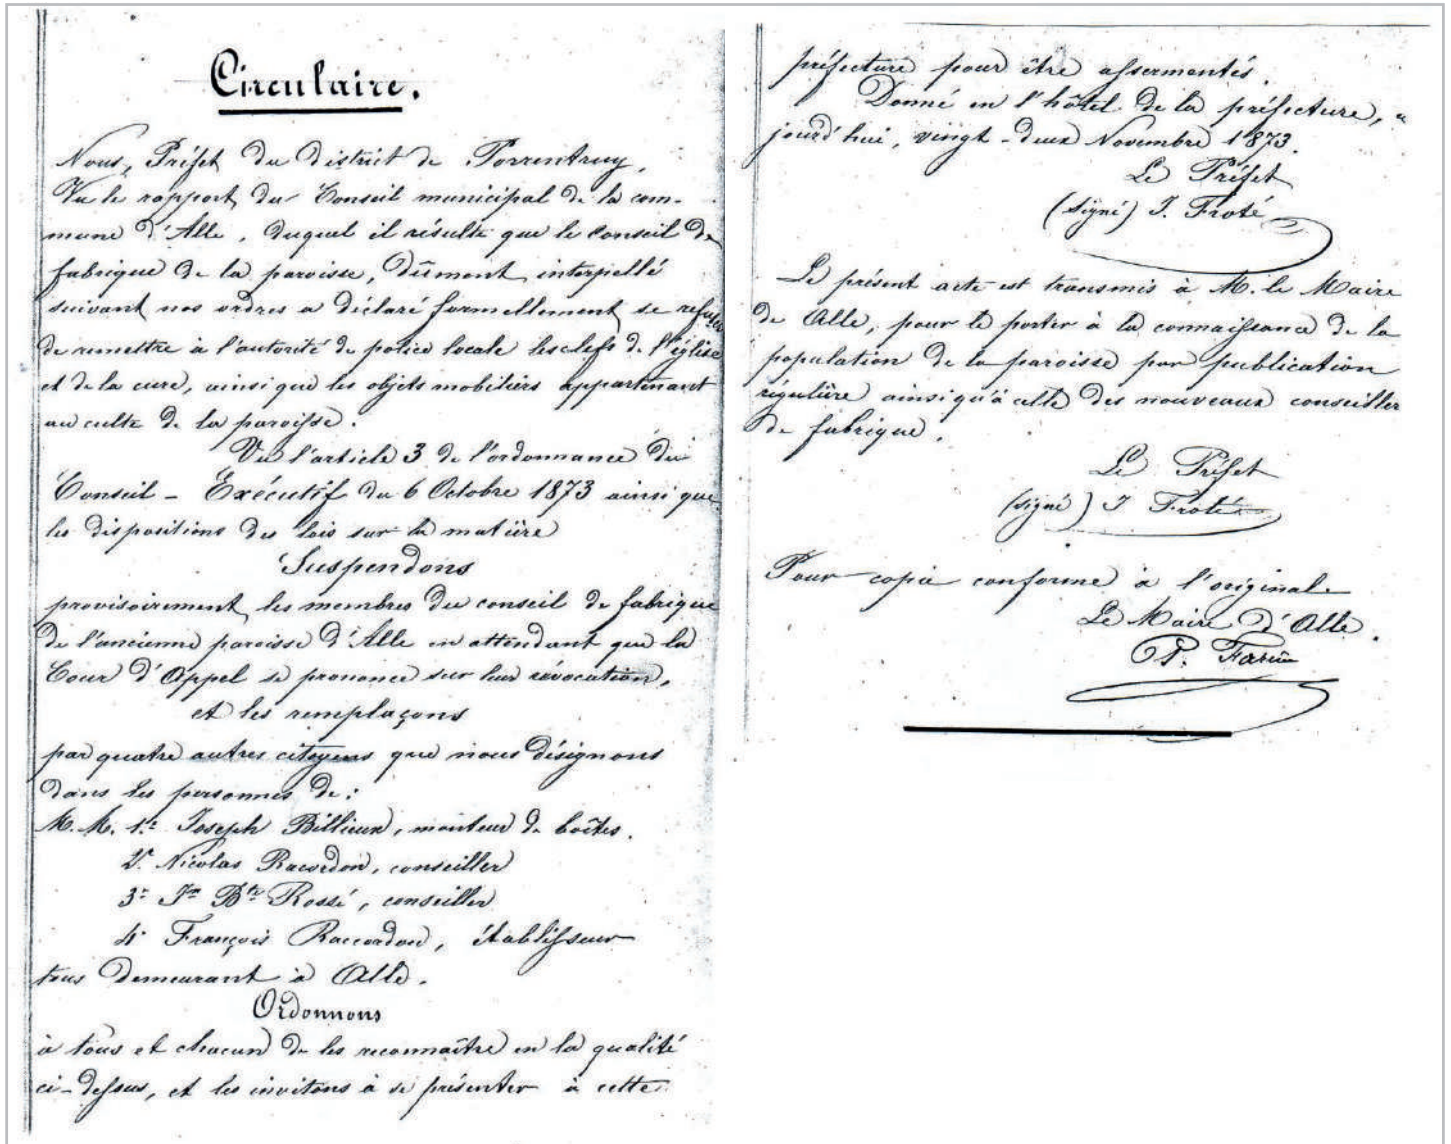 Circulaire.
Nous, Préfet du District de Porrentruy,
Vu le rapport du Conseil municipal de la com-
mune d'Alle, duquel il résulte que le conseil de
fabrique de la paroisse, dûment interpellé
suivant nos ordres a déclaré formellement se refuser
de remettre à l'autorité de police locale les clefs de l'église
et de la cure, ainsi que les objets mobiliers appartenant
au culte de la paroisse.
Vu l'article 3 de l'ordonnance du
Conseil - Exécutif du 6 Octobre 1873 ainsi que
les dispositions des lois sur la matière
Suspendons
provisoirement les membres du conseil de fabrique
de l'ancienne paroisse d'Alle en attendant que la
Cour d'Appel se prononce sur leur révocation,
et les remplaçons
par quatre autres citoyens que nous désignons
dans les personnes de :
M.M. 1.° Joseph Billieux, monteur de boîtes.
2.° Nicolas Racordon, conseiller
3.° Jn Bte Rossé, conseiller
4° François Raccordon, établisseur
tous demeurant à Alle.
Ordonnons
à tous et chacun de les reconnaître en la qualité
ci-dessus, et les invitons à se présenter à cette
préfecture pour être assermentés.
Donné en l'hôtel de la préfecture, a
jourd'hui, vingt-deux Novembre 1873.
Le Préfet
(signé) J. Froté
Le présent acte est transmis à M. le Maire
de Alle, pour le porter à la connaissance de la
population de la paroisse par publication
régulière ainsi qu'à celle des nouveaux conseiller
de fabrique.
Le Préfet
(signé) J Froté
Pour copie conforme à l'original
Le Maire d'Alle.
P. Farine